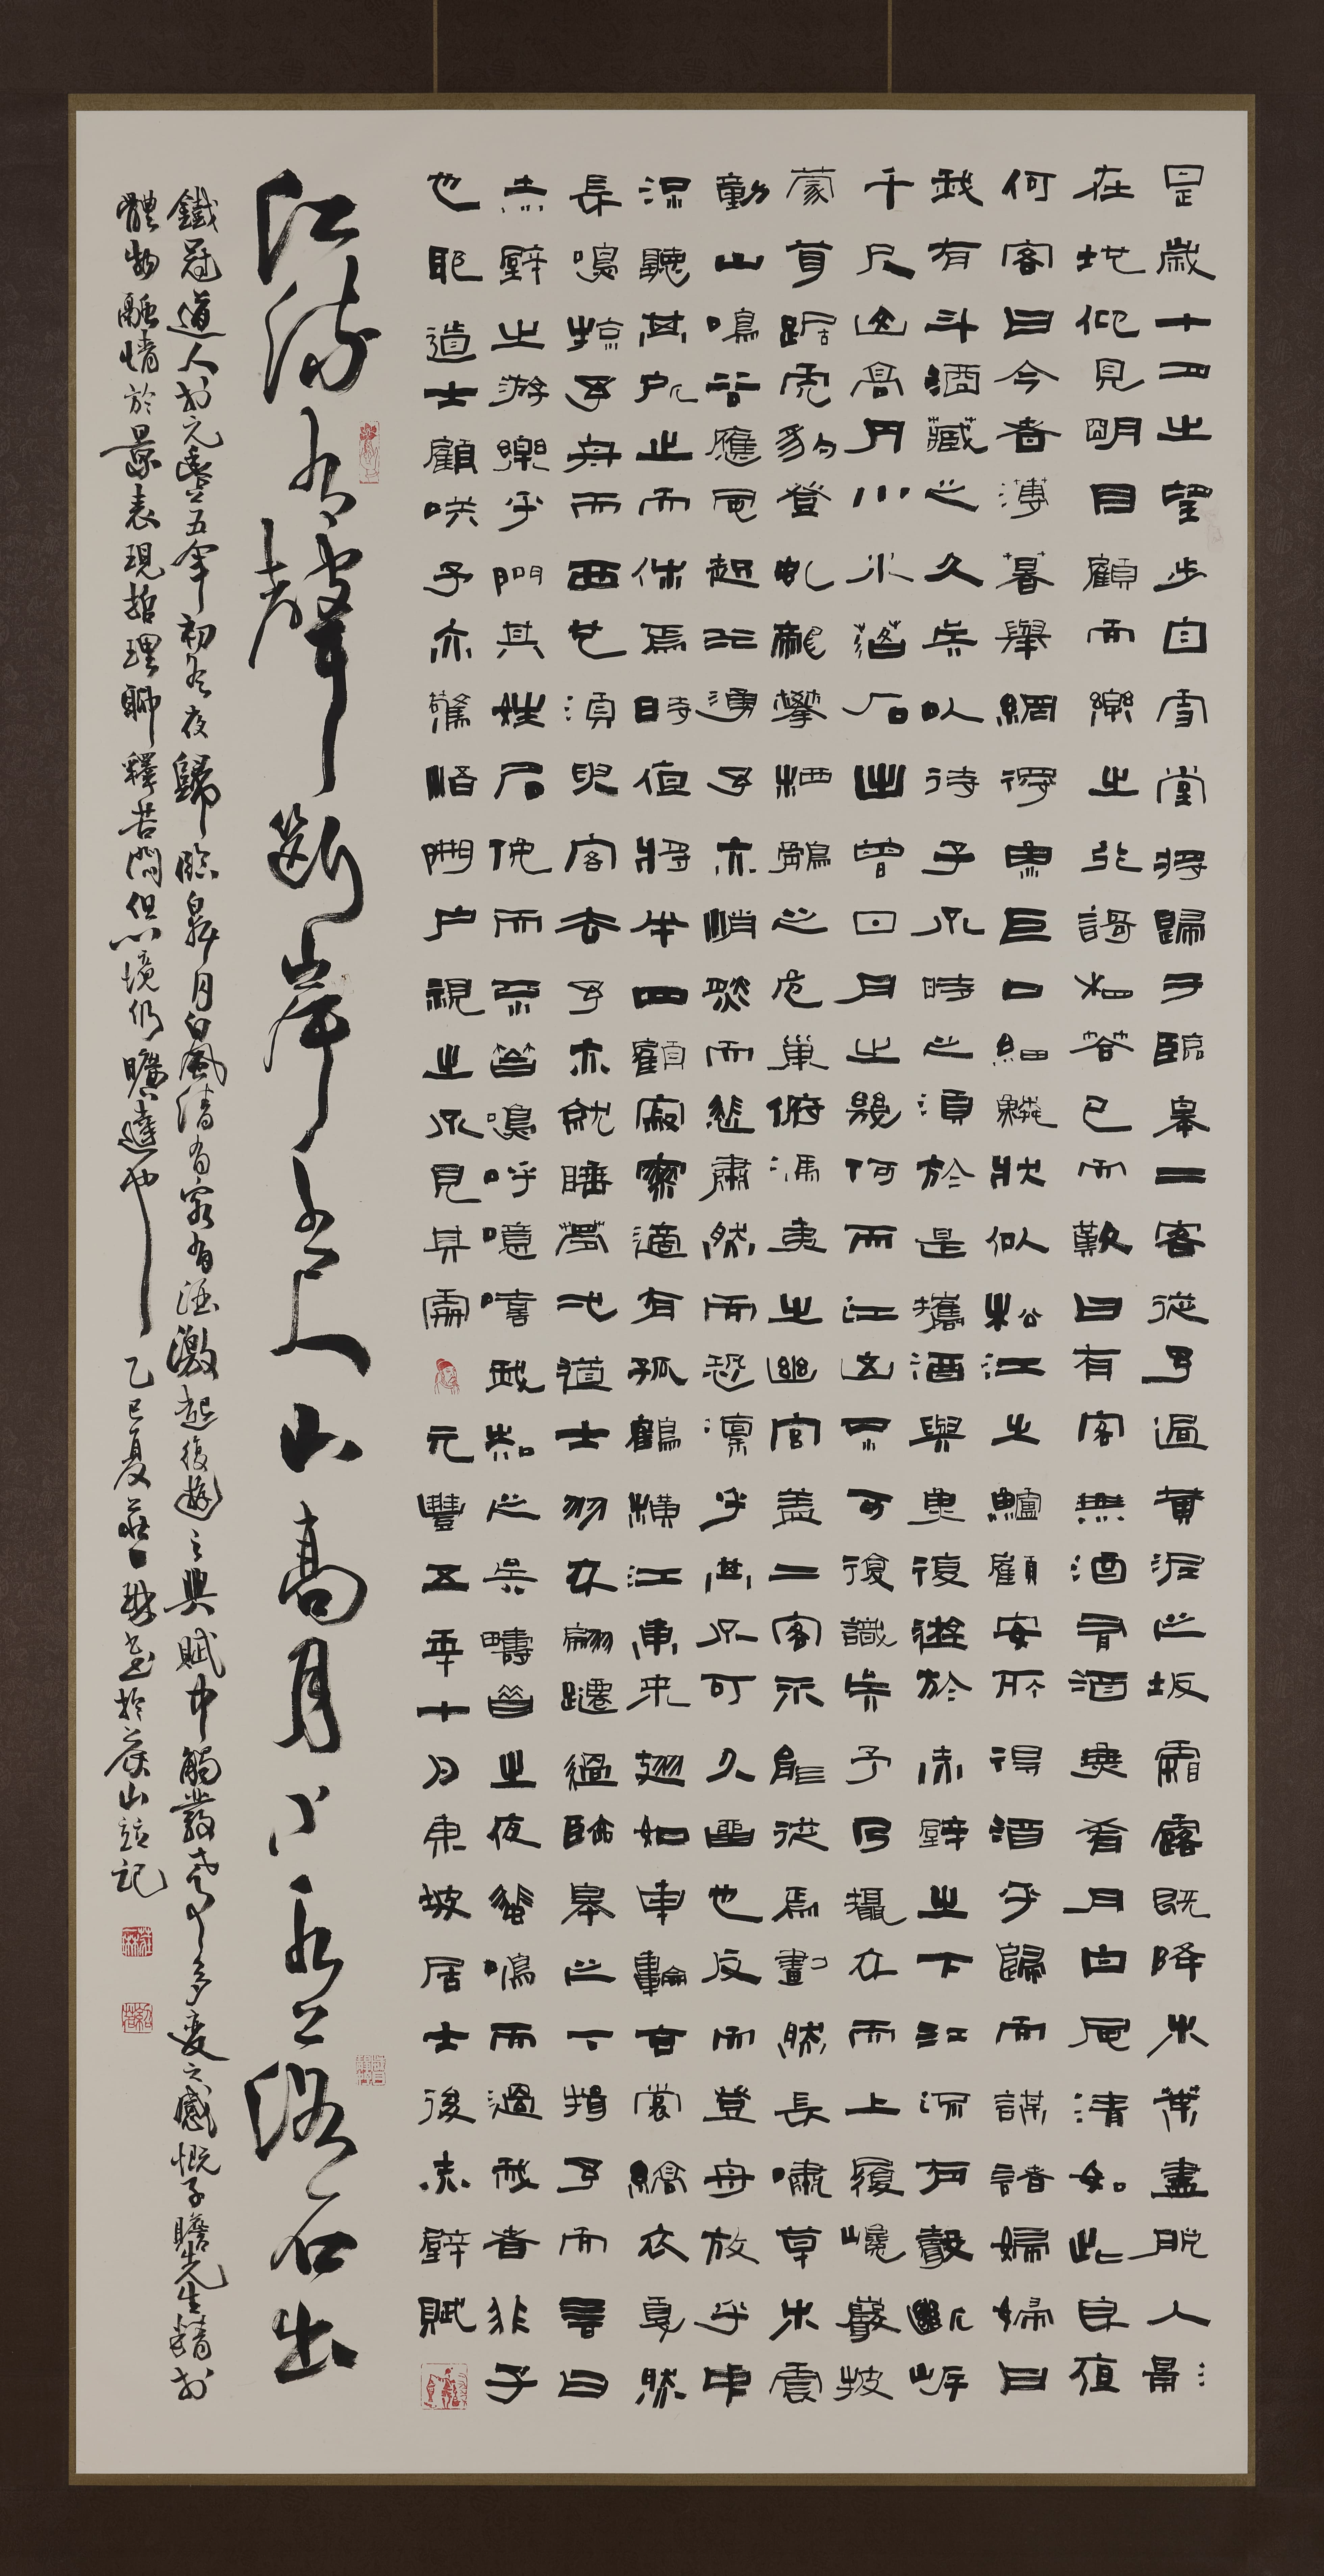 是歲十月之望步自雪堂將歸于臨皋二客從予過黃泥之坂霜露既降木葉盡脫人影
在地仰見明月顧而樂之行謌相答已而歎曰有客無酒有酒無肴月白風清如此良夜
何客曰今者薄暮舉網得魚巨口細鱗狀似松江之鱸顧安所得酒乎歸而謀諸婦婦曰
我有斗酒藏之久矣以待子不時之須於是攜酒與魚復遊於赤壁之下江流有聲斷岸
千尺山高月小水落石出曾日月之幾何而江山不可復識矣予乃攝衣而上履巉巖披
蒙茸踞虎豹登虬龍攀栖鶻之危巢俯馮夷之幽宮蓋二客不能從焉劃然長嘯草木震
動山鳴谷應風起水湧予亦悄然而悲肅然而恐凜乎其不可久留也反而登舟放乎中
流聽其所止而休焉時夜將半四顧寂寥適有孤鶴橫江東來翅如車輪玄裳縞衣戛然
長鳴掠予舟而西也須臾客去予亦就睡夢一道士羽衣翩躚過臨皋之下揖予而言曰
赤壁之游樂乎問其姓名俛而不答嗚呼噫嘻我知之矣疇昔之夜飛鳴而過我者非子
也耶道士顧笑予亦驚悟開戶視之不見其處 元豐五年十月東坡居士後赤壁賦
江流有聲斷岸千尺山高月小水落石出
鐵冠道人於元豐五年初冬夜歸臨皋月白風清有客有酒激起復遊之興賦中觸發世事多變之感慨子瞻先生精於
體物融情於景表現哲理聊釋苦悶但心境仍曠達也 乙巳夏莊 書於 山並記